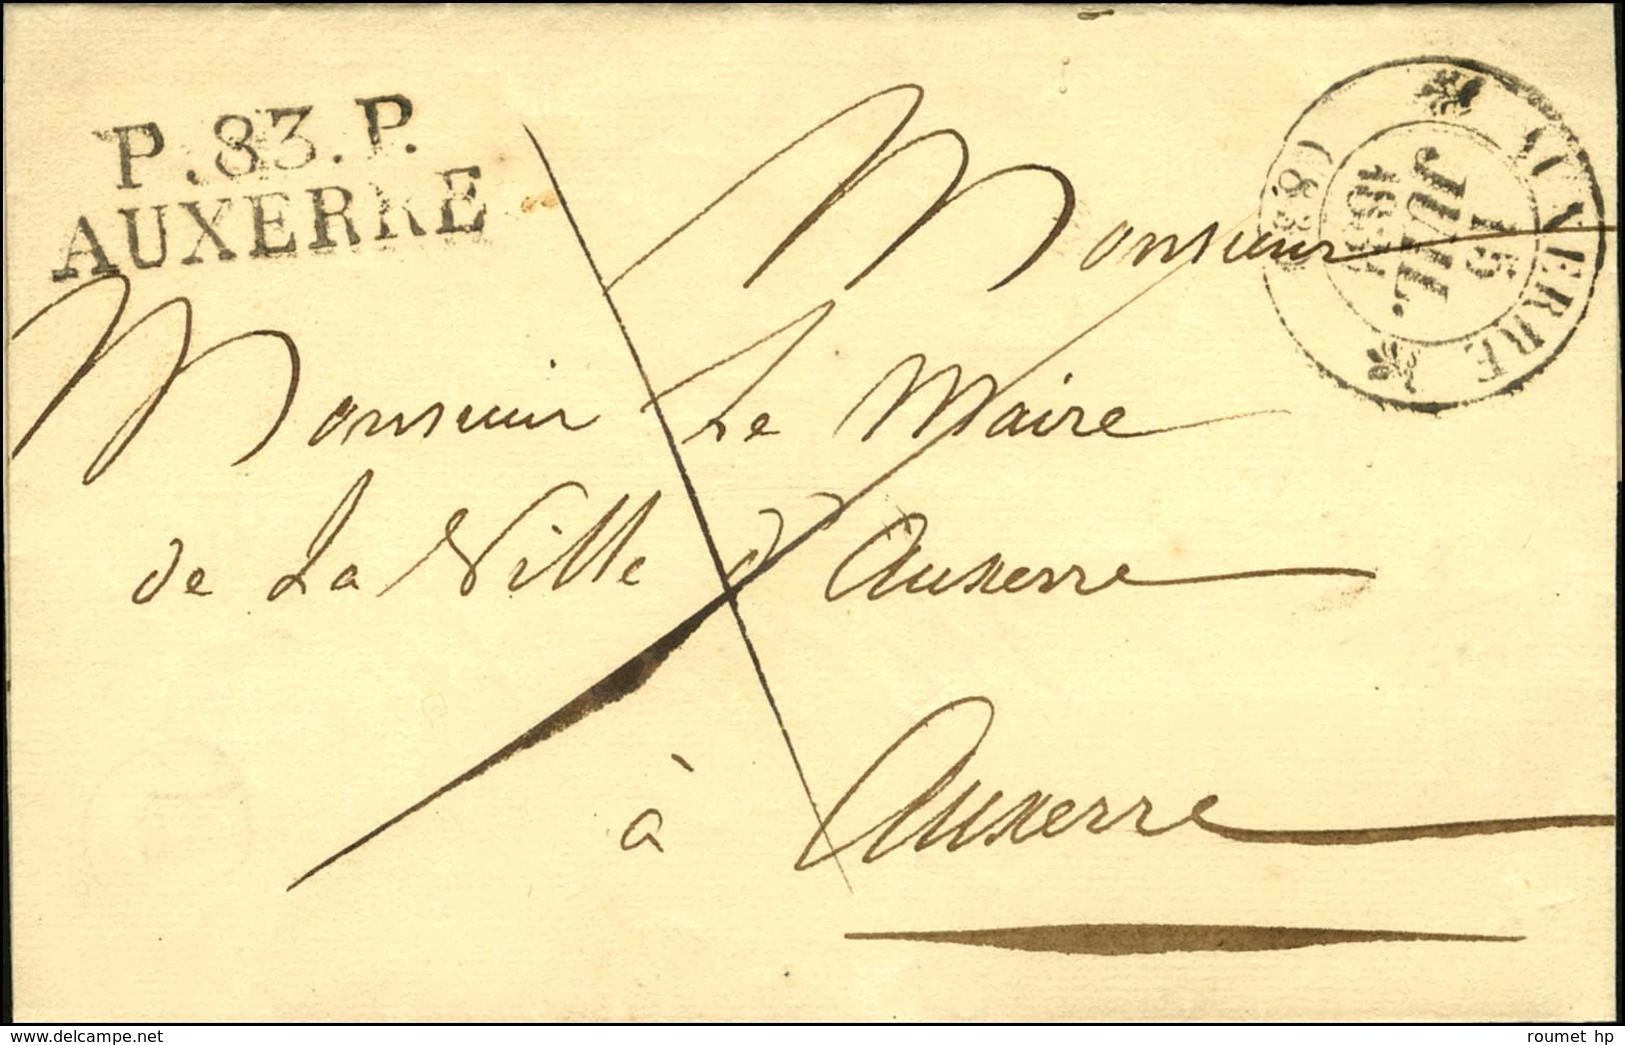 P.83.P.
AUXERRE
AUXERRE
15
JUIL.
(83)
Monsieur
Monsieur Le Maire
de La Ville d'Auxerre
à Auxerre
www.delcampe.net
roumet hp